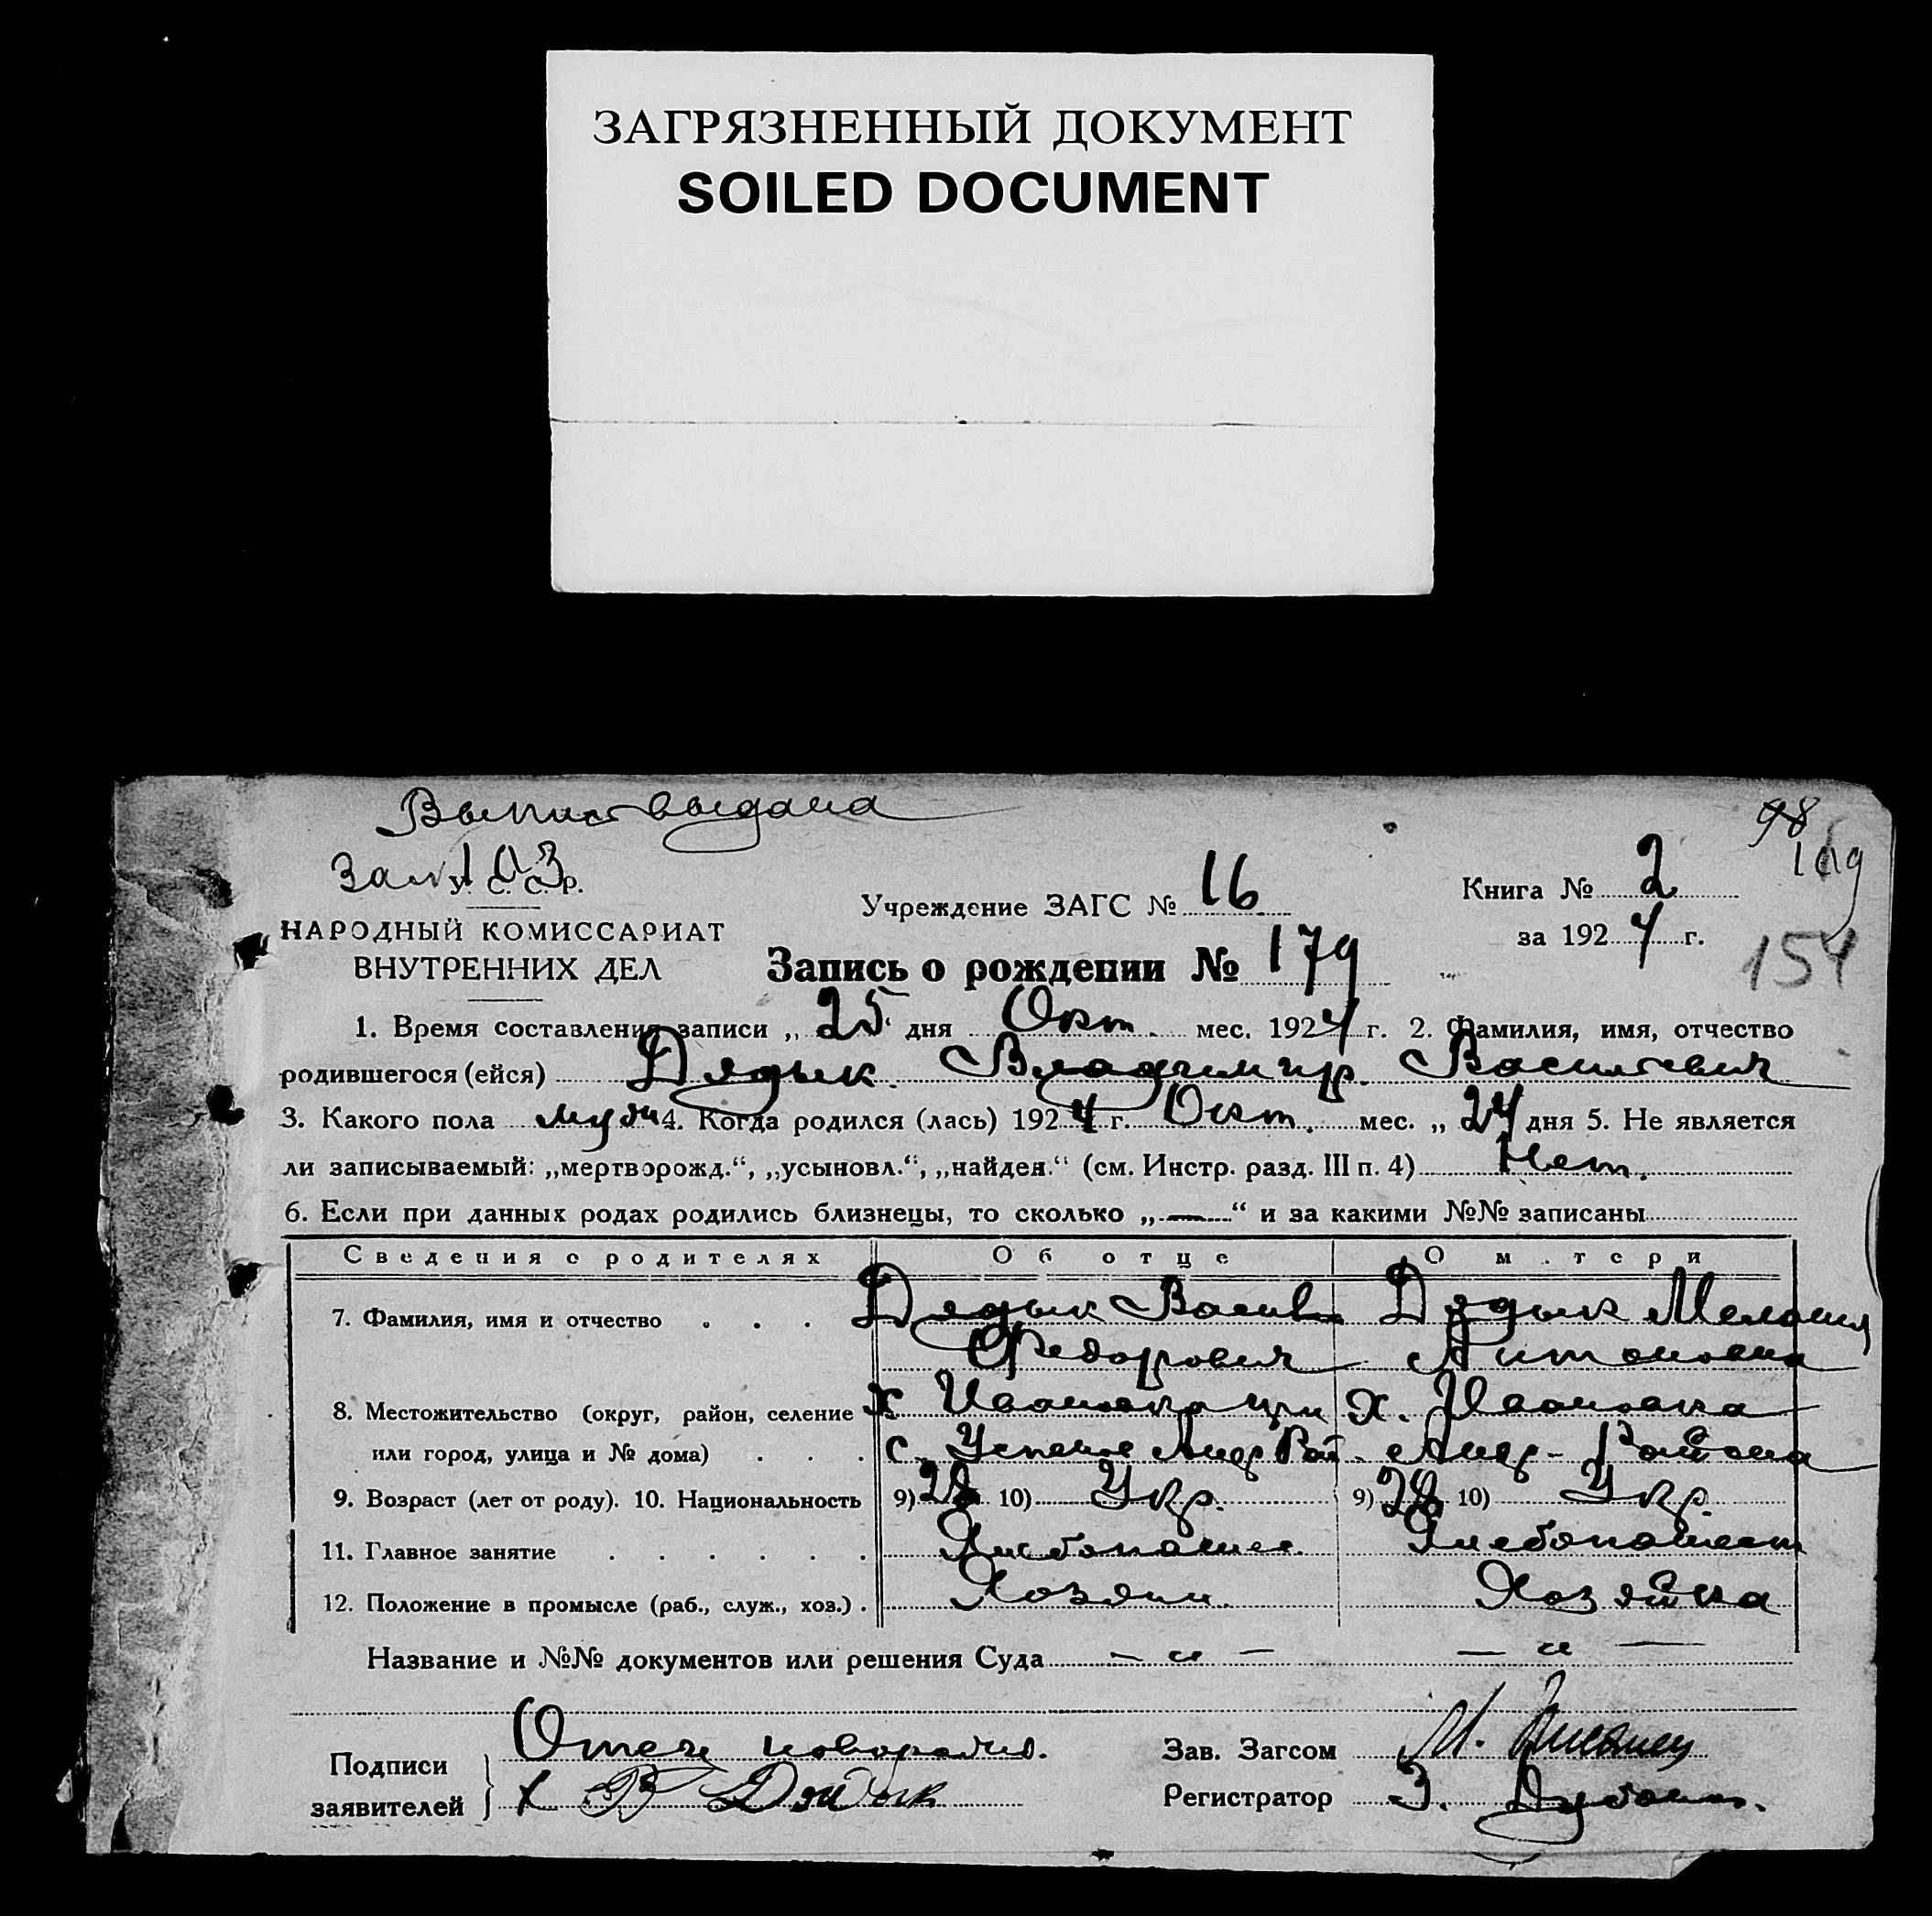 ЗАГРЯЗНЕННЫЙ ДОКУМЕНТ
SOILED DOCUMENT
Выпись выдана
98
У. С. С. Р.
НАРОДНЫЙ КОМИССАРИАТ
ВНУТРЕННИХ ДЕЛ
Учреждение ЗАГС № 16
Книга № 2
за 1924 г.
154
Запись о рождении № 179
1. Время составления записи „ 25 “ дня Окт. мес. 1924 г. 2. Фамилия, имя, отчество
родившегося (ейся) Дядык Владимир. Васильевич
3. Какого пола муж 4. Когда родился (лась) 1924 г. Окт. мес. „ 24 дня 5. Не является
ли записываемый: „мертворожд.“, „усыновл.“, „найден.“ (см. Инстр. разд. III п. 4) Нет.
6. Если при данных родах родились близнецы, то сколько „—“ и за какими №№ записаны
Сведения о родителях Об отце О м.тери
7. Фамилия, имя и отчество . . . Дядык Васил Дядык Мелания
Федорович Антоновна
8. Местожительство (округ, район, селение х. Ивановка при х. Ивановка
или город, улица и № дома) . . . с. Успеное Амвр Рай. Амвр- Района
9. Возраст (лет от роду). 10. Национальность 9) 28 10) Укр. 9) 28 10) Укр.
11. Главное занятие . . . . . . Хлебопашес. Хлебопашест
12. Положение в промысле (раб., служ., хоз.) . Хозяин. Хозяйка
Название и №№ документов или решения Суда — „ — — „ —
Подписи
заявителей
Отец новорожд.
х В Дядык
Зав. Загсом М.
Регистратор З.